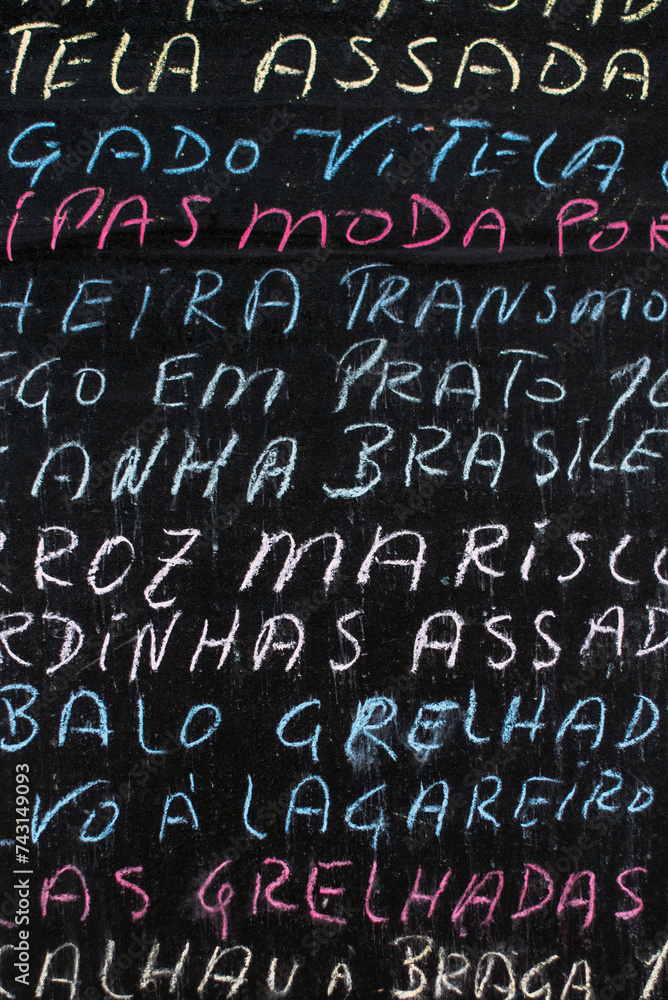 TELA ASSADA
GADO VITELA
IPAS MODA POR
HEIRA TRANSMO
EGO EM PRATO 10
CANHA BRASILE
RROZ MARISCO
RDINHAS ASSAD
BALO GRELHAD
LVO À LAGAREIRO
LAS GRELHADAS
CALHAU A BRAGA 1